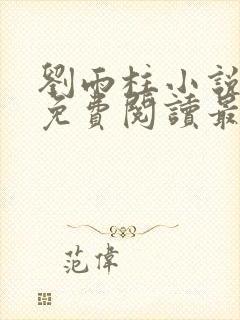 劉雨柱小說
免費閱讀最
范偉